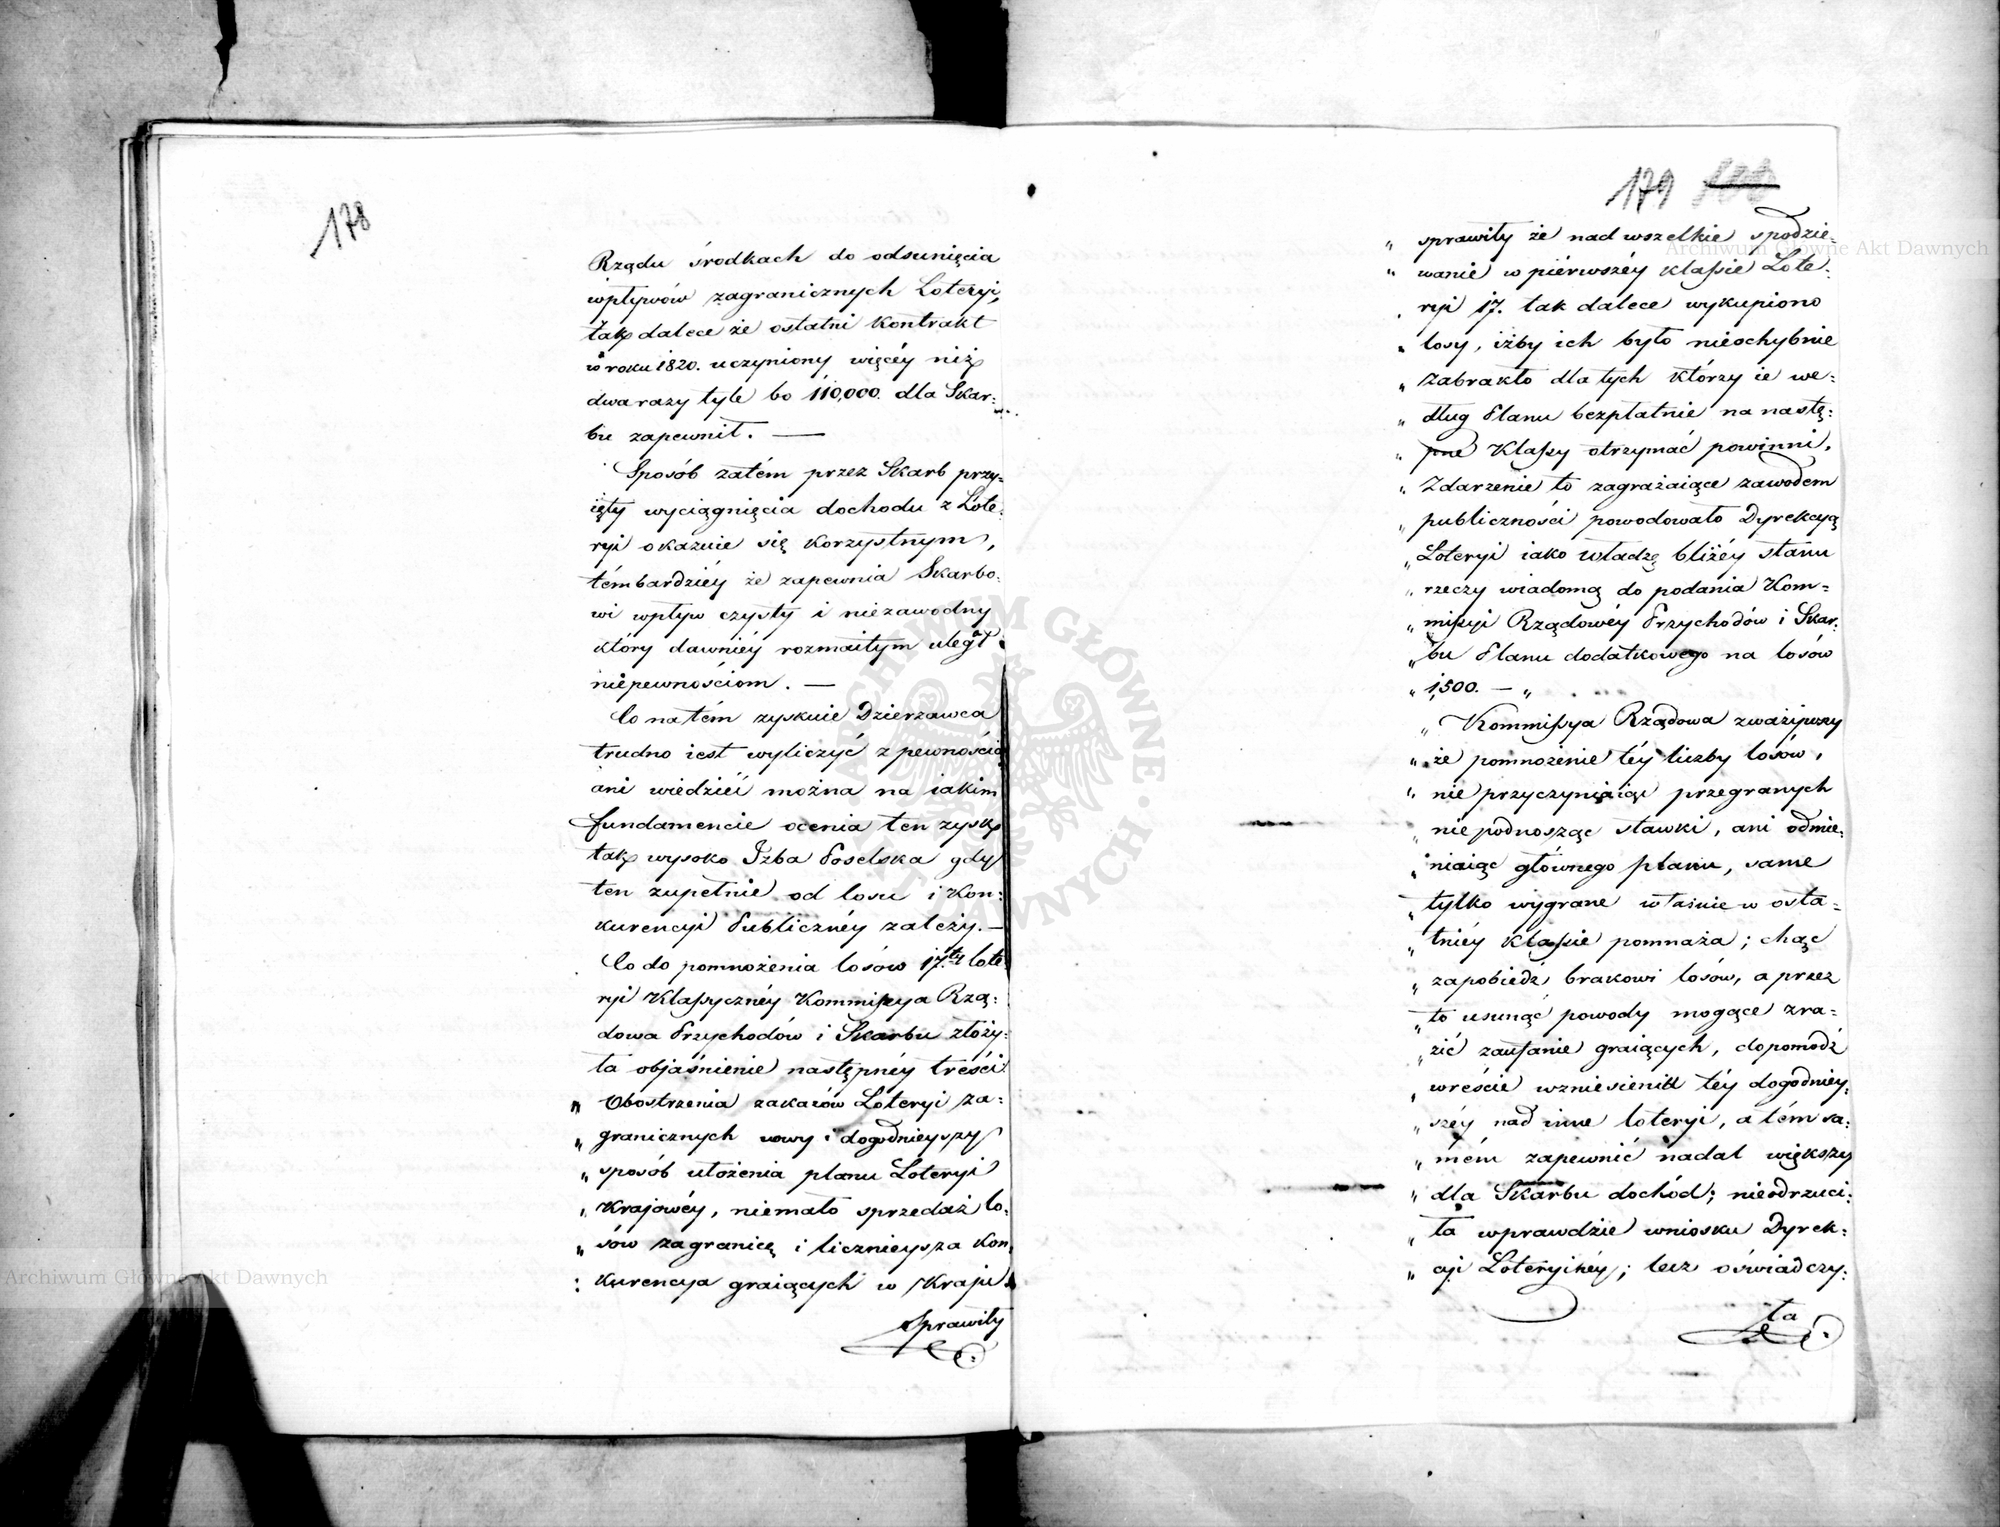 178
Rządu środkach do odsunięcia
wpływów zagranicznych Loteryi,
tak dalece że ostatni kontrakt
w roku 1820. uczyniony więcéy niż
dwa razy tyle bo 110,000. dla Skar=
bu zapewnił. —
Sposób zatém przez Skarb przy=
ięty wyciągnięcia dochodu z Lote=
ryi okazuie się korzystnym,
témbardziéy że zapewnia Skarbo=
wi wpływ czysty i niezawodny
który dawniéy rozmaitym uległ
niepewnościom. —
Co na tém zyskuie Dzierzawca
trudno iest wyliczyć z pewnością
ani wiedzieć można na iakim
fundamencie ocenia ten zysk
tak wysoko Izba Poselska gdy
ten zupełnie od losu i kon=
kurencyi Publicznéy zależy. —
Co do pomnożenia losów 17.téy lote=
ryi Klassycznéy Kommissya Rzą=
dowa Przychodów i Skarbu złoży=
ła objaśnienie następnéy treści
„ Obostrzenia zakazów Loteryi za=
„ granicznych nowy i dogodnieyszy
„ sposób ułożenia planu Loteryi
„ Krajowéy, niemało sprzedaż lo=
„ sów zagranicę i licznieysza kon=
„ kurencya graiących w Kraju
sprawiły
179
„ sprawiły że nad wszelkie spodzie=
„ wanie w piérwszéy klassie Lote=
„ ryi 17. tak dalece wykupiono
„ losy, iżby ich było nieochybnie
„ zabrakło dla tych którzy ie we=
„ dług Planu bezpłatnie na nastę=
„ pne Klassy otrzymać powinni.
„ Zdarzenie to zagrażaiące zawodem
„ publiczności powodowało Dyrekcyą
„ Loteryi iako władzę bliżéy stanu
„ rzeczy wiadomą do podania Kom=
„ missyi Rządowéy Przychodów i Skar=
„ bu Planu dodatkowego na losów
„ 1,500. — „
„ Kommissya Rządowa zważiwszy
„ że pomnożenie téy liczby losów,
„ nie przyczyniaiąc przegranych
„ nie podnosząc stawki, ani odmie=
„ niaiąc głównego planu, same
„ tylko wygrane właśnie w osta=
„ tniéy klassie pomnaża; chąc
„ zapobiedź brakowi losów, a przez
„ to usunąć powody mogące zra=
„ zić zaufanie graiących, dopomódz
„ wreście wzniesieniu téy dogodniey=
„ széy nad inne loteryi, a tém sa=
„ mém zapewnić nadal większy
„ dla Skarbu dochód; nieodrzuci=
„ ła wprawdzie wniosku Dyrek=
„ cyi Loteryinéy; lecz oświadczy=
ła
Archiwum Główne Akt Dawnych
Archiwum Główne Akt Dawnych
ARCHIWUM GŁÓWNE AKT DAWNYCH